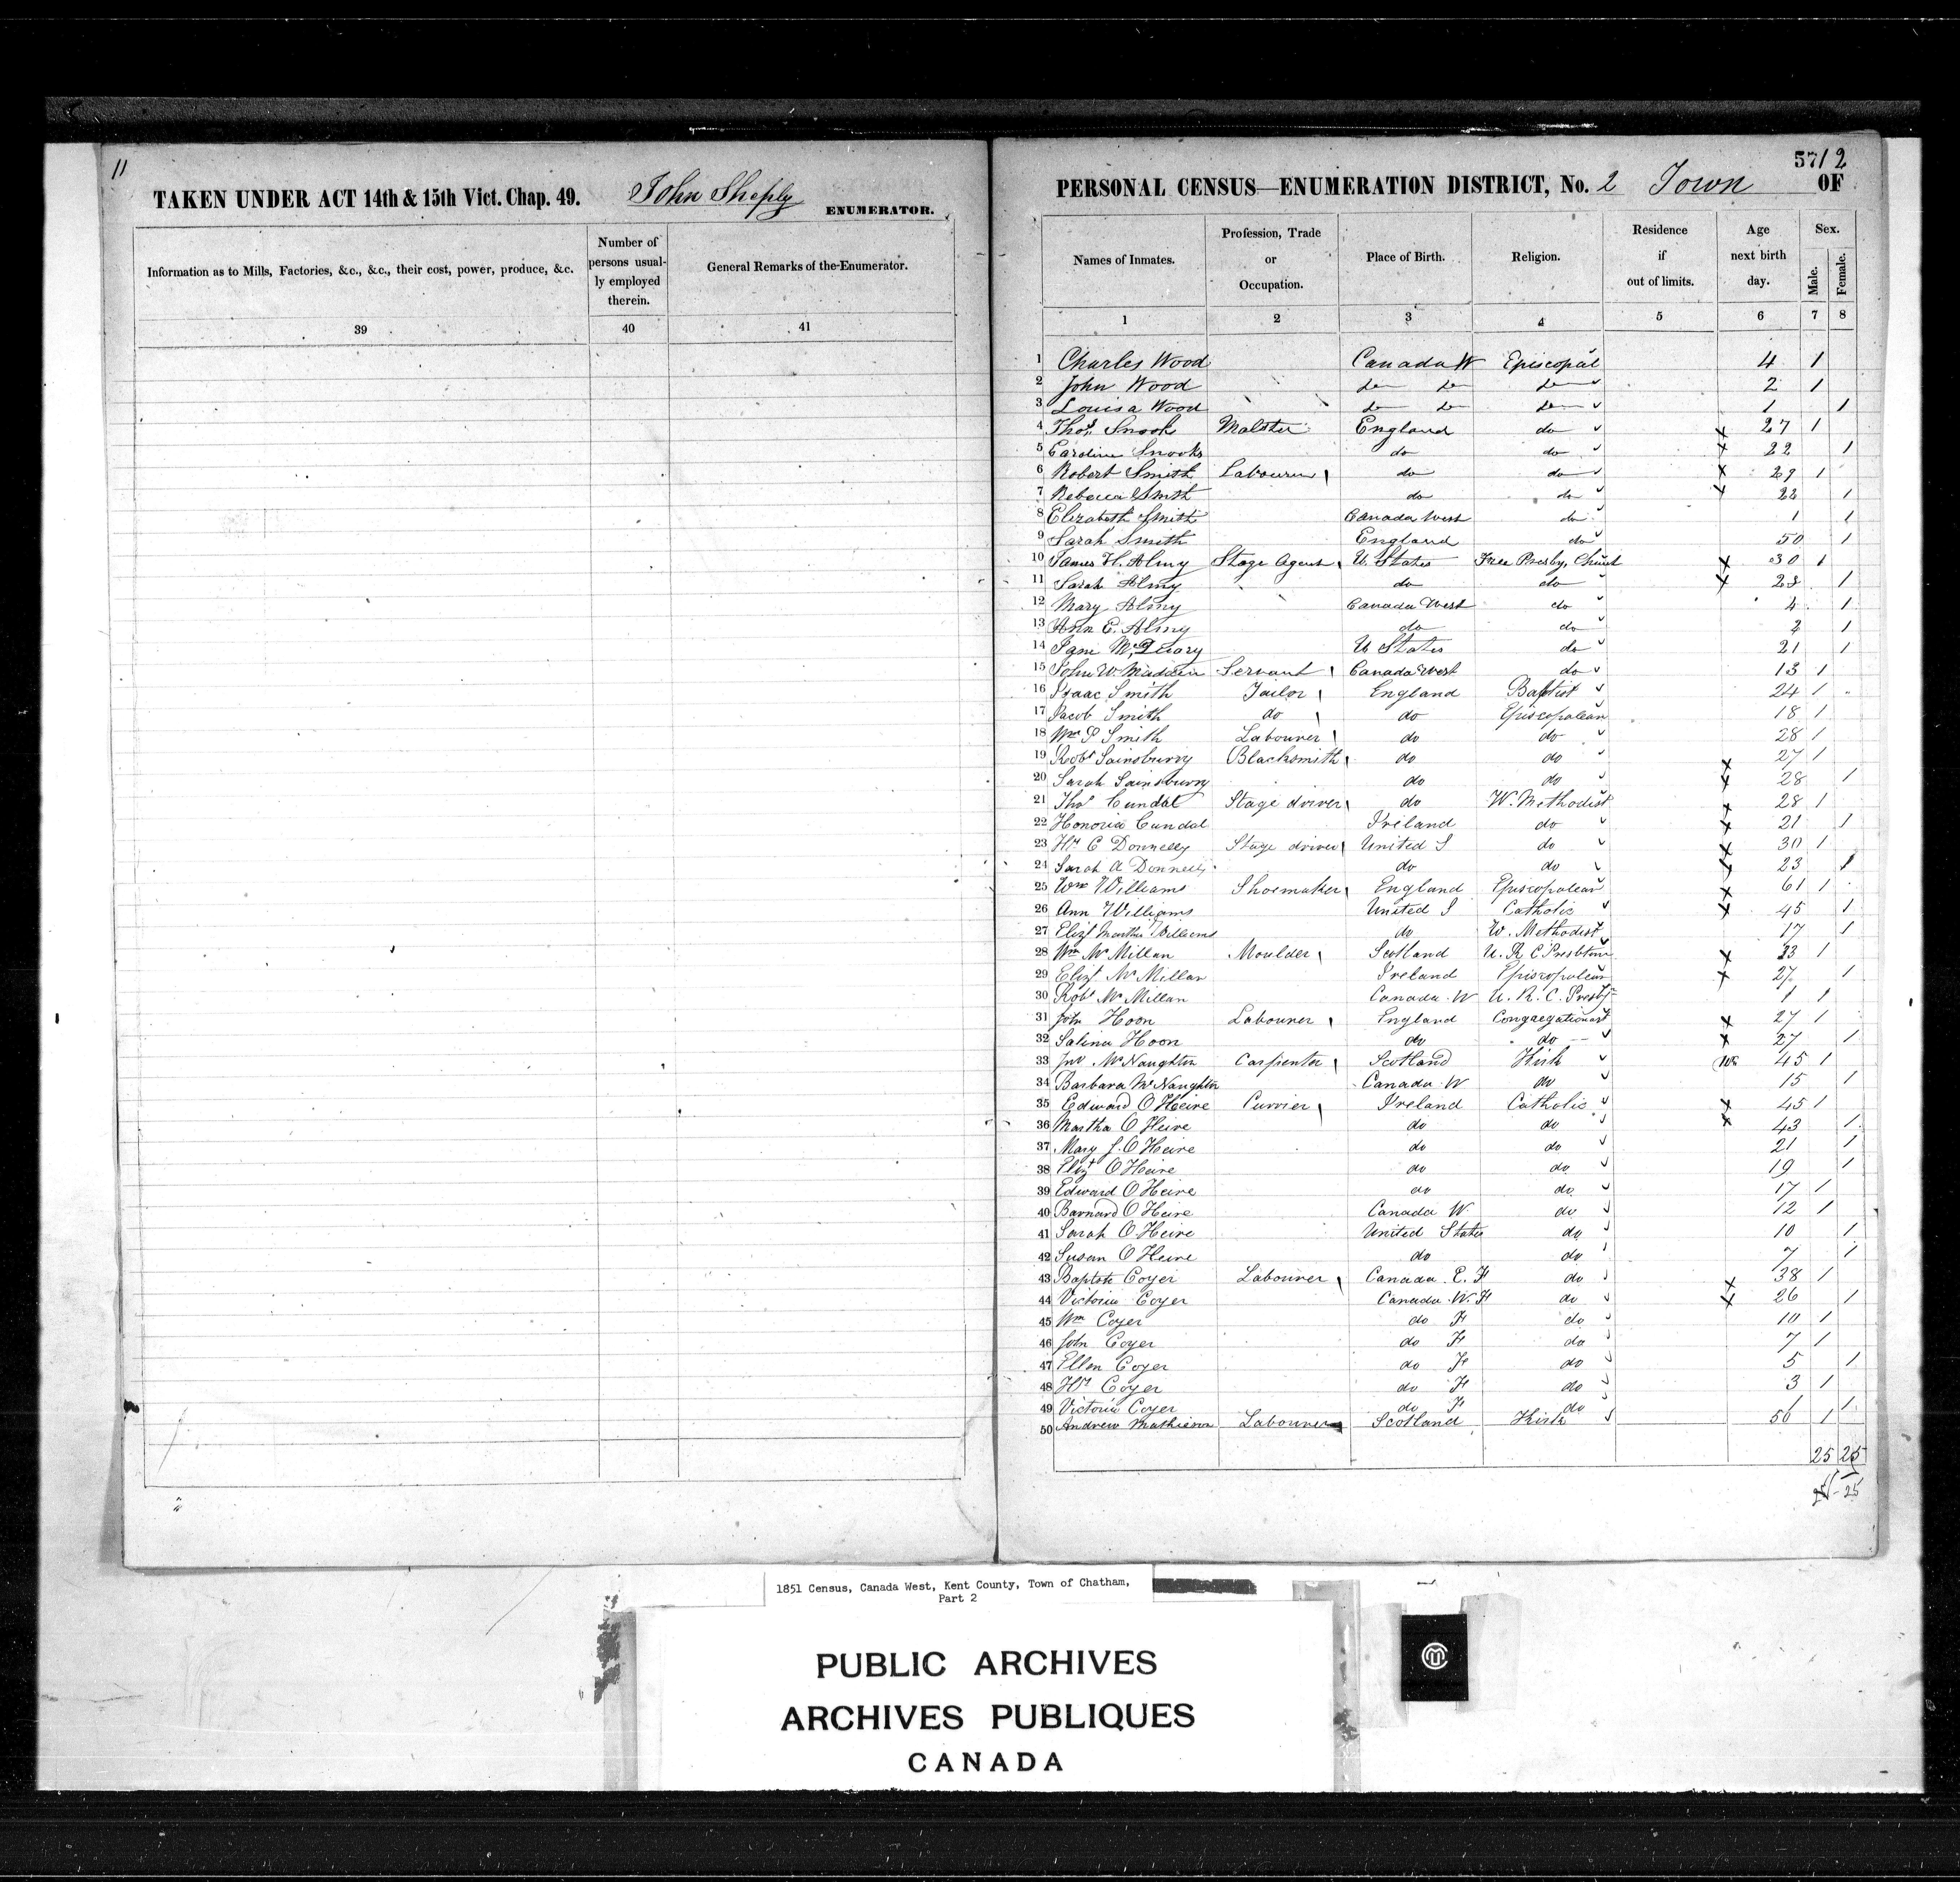 11
TAKEN UNDER ACT 14th & 15th Vict. Chap. 49. John Sheply ENUMERATOR.
Information as to Mills, Factories, &c., &c., their cost, power, produce, &c.
Number of persons usual-
ly employed therein.
General Remarks of the Enumerator.
39 40 41
57/2
PERSONAL CENSUS—ENUMERATION DISTRICT, No. 2 Town OF
Names of Inmates. Profession, Trade or Occupation. Place of Birth. Religion. Residence if out of limits. Age next birth day. Sex. Male. Female.
1 2 3 4 5 6 7 8
1 Charles Wood Canada W Episcopal 4 1
2 John Wood do do do 2 1
3 Louisa Wood do do do 1 1
4 Thos Snook Malster England do x 27 1
5 Caroline Snooks do do x 22 1
6 Robert Smith Labourer do do x 29 1
7 Rebecca Smith do do x 22 1
8 Elizabeth Smith Canada West do 1 1
9 Sarah Smith England do 50 1
10 James H. Almy Stage Agent U. States Free Presby. Church x 30 1
11 Sarah Almy do do x 28 1
12 Mary Almy Canada West do 4 1
13 Ann E. Almy do do 2 1
14 Jane U States do 21 1
15 John W. Madden Servant Canada West do 13 1
16 Isaac Smith Tailor England Baptist 24 1
17 Jacob Smith do do Episcopalean 18 1
18 Wm P Smith Labourer do do 28 1
19 Robt Sainsburry Blacksmith do do x 27 1
20 Sarah Sainsburry do do x 28 1
21 Thos Cundal Stage driver do W. Methodist x 28 1
22 Honoria Cundal Ireland do x 21 1
23 Hy C Donnelly Stage driver United S do x 30 1
24 Sarah A Donnelly do do x 23 1
25 Wm Williams Shoemaker England Episcopalean x 61 1
26 Ann Williams United S Catholic x 45 1
27 Elizt Martha Williams do W. Methodist 17 1
28 Wm McMillan Moulder Scotland U. R C Presbtrin x 33 1
29 Elizt McMillan Ireland Episcopalean x 27 1
30 Robt McMillan Canada W U. R. C. Presby 1 1
31 John Hoon Labourer England Congregationast x 27 1
32 Salina Hoon do do x 27 1
33 Jno McNaughton Carpenter Scotland Kirk 45 1
34 Barbara McNaughton Canada W do 15 1
35 Edward O Heire Currier Ireland Catholic x 45 1
36 Martha O Heire do do x 43 1
37 Mary J. O Heire do do 21 1
38 Elizt O Heire do do 19 1
39 Edward O Heire do do 17 1
40 Barnard O Heire Canada W do 12 1
41 Sarah O Heire United States do 10 1
42 Susan O Heire do do 7 1
43 Baptste Coyer Labourer Canada E. F do x 38 1
44 Victoria Coyer Canada W. F do x 26 1
45 Wm Coyer do F do 10 1
46 John Coyer do F do 7 1
47 Ellen Coyer do F do 5 1
48 Hy Coyer do F do 3 1
49 Victoria Coyer do F do 1 1
50 Andrew Mathieson Labourer Scotland Kirk 56 1
25 25
25 - 25
1851 Census, Canada West, Kent County, Town of Chatham,
Part 2
PUBLIC ARCHIVES
ARCHIVES PUBLIQUES
CANADA